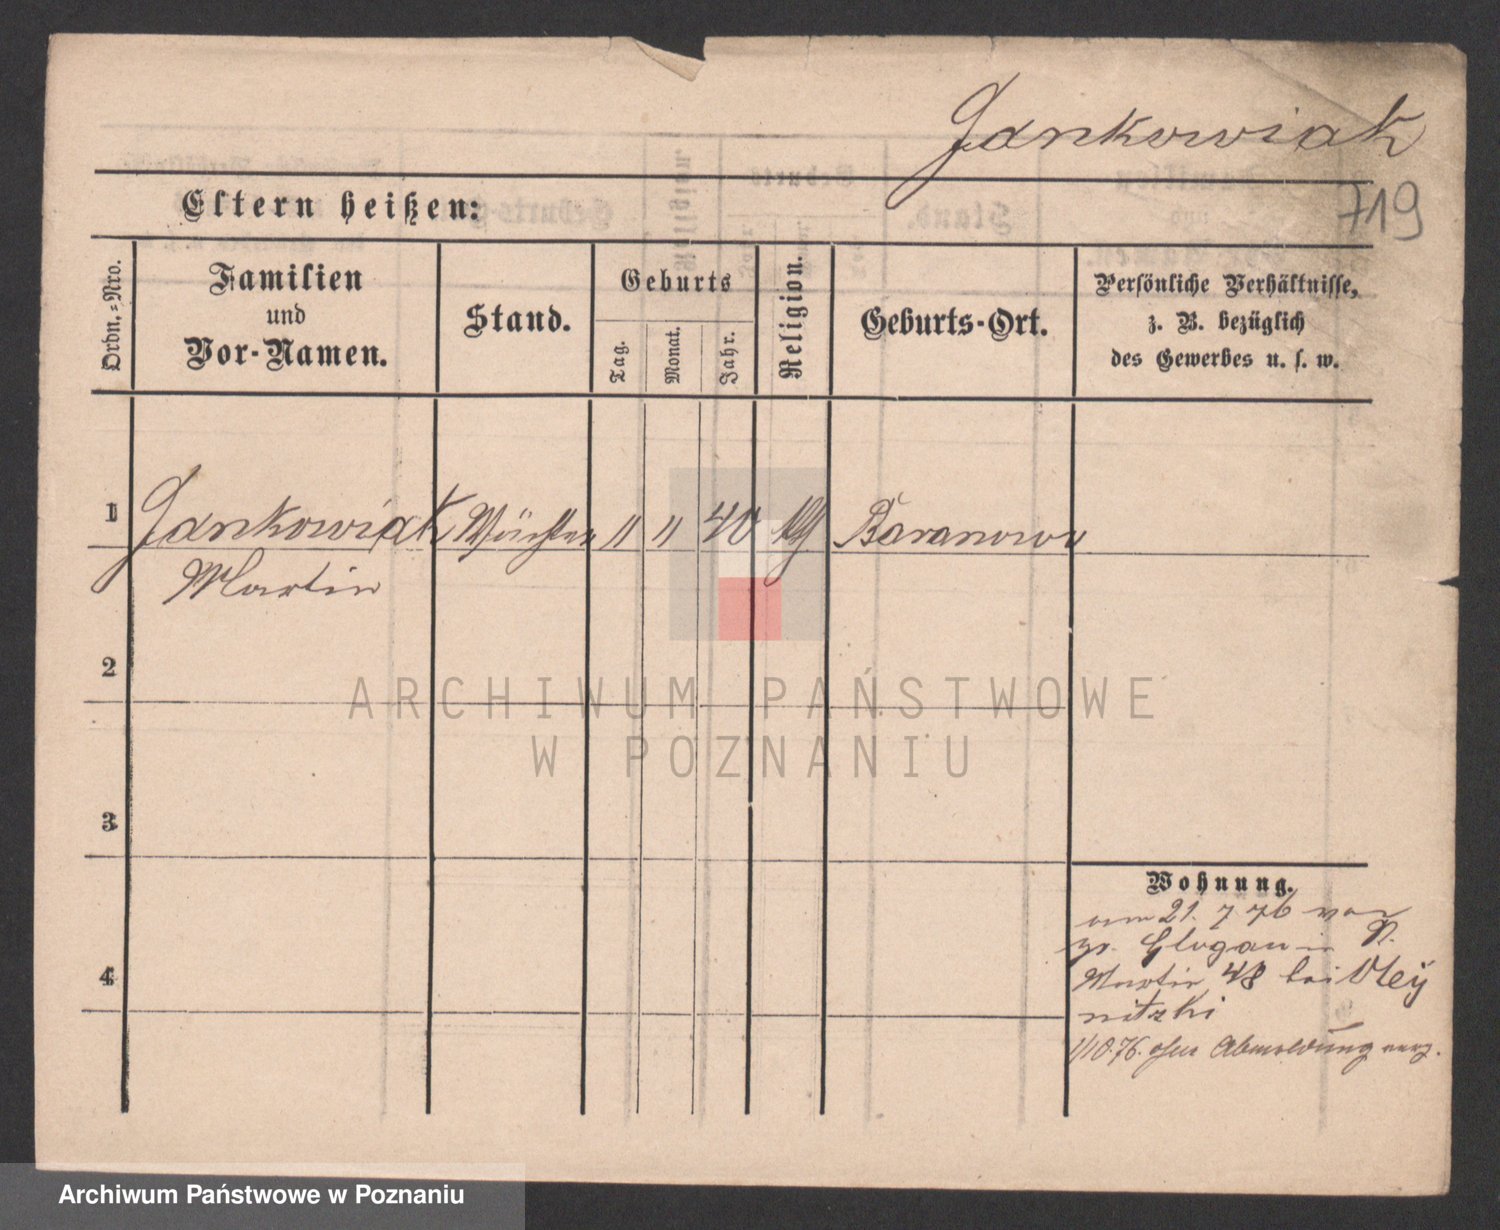 Jankowiak
719
Eltern heißen:
Ordn.-Nro.
Familien
und
Vor-Namen.
Stand.
Geburts
Tag.
Monat.
Jahr.
Religion.
Geburts-Ort.
Persönliche Verhältnisse,
z. B. bezüglich
des Gewerbes u. s. w.
1 Jankowiak Wächter " " 40 Baranowo
Martin
2
ARCHIWUM PAŃSTWOWE
W POZNANIU
3
Wohnung.
am 21. 7 76 von
gr. Glogau in St.
Martin 48 bei
nitzki
4
1/10.76. ohne Abmeldung verz.
Archiwum Państwowe w Poznaniu